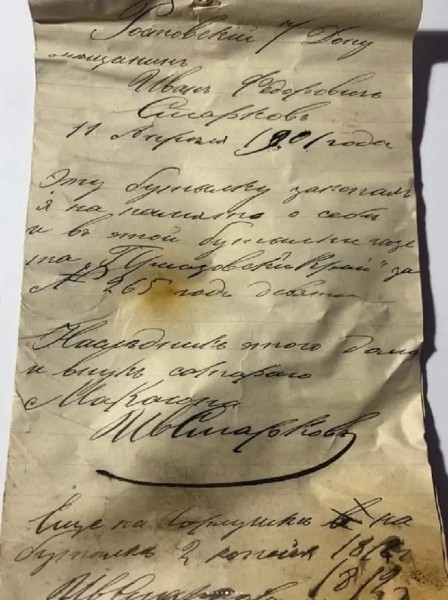 Ростовскій н/Дону
мѣщанинъ
Иванъ Федоровичъ
Смарковъ
11 Апрѣля 1901 года
Эту бутылку закопалъ
я на память о себѣ
и въ этой бутылки газе
та "Приазовскій Край" за
№ 265 годъ девяты
Наслѣдникъ этого дома
и внукъ стараго
Макагона
ИвСмарковъ
Еще на горлушкѣ на
бутылкѣ 2 копейк
ИвСмарковъ